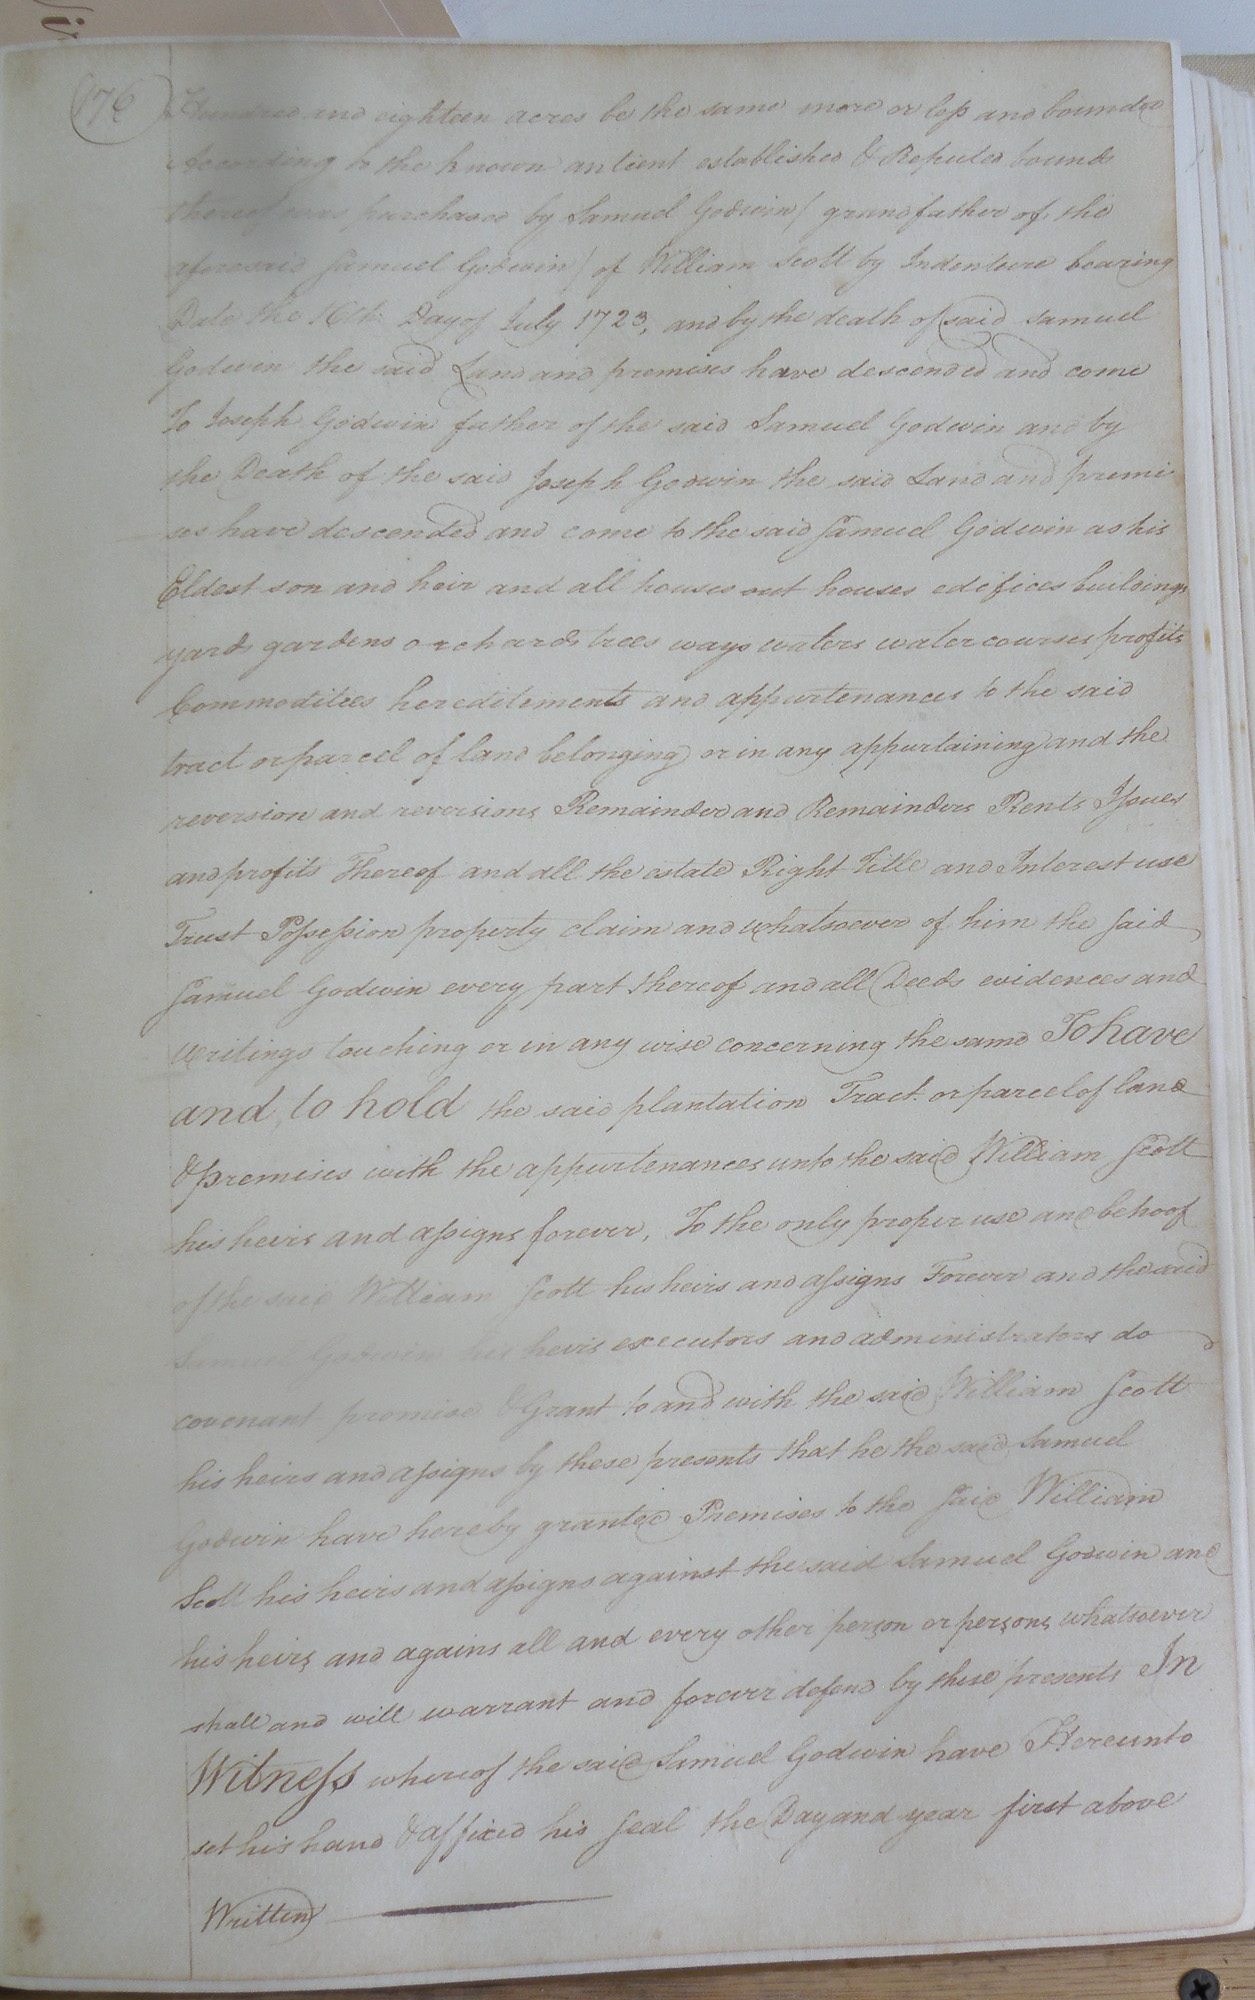 176
Hundred and eighteen acres be the same more or less and bounded
According to the known antient established & Reputed bounds
thereof was purchased by Samuel Godwin / grandfather of the
aforesaid Samuel Godwin / of William Scott by Indenture bearing
Date the 16th Day of July 1723, and by the death of said Samuel
Godwin the said Land and premises have descended and come
To Joseph Godwin father of the said Samuel Godwin and by
the Death of the said Joseph Godwin the said Land and premi
ses have descended and come to the said Samuel Godwin as his
Eldest son and heir and all houses out houses edifices buildings
yards gardens orchards trees ways waters watercourses profits
Commoditees hereditements and appurtenances to the said
tract or parcel of land belonging or in any appurtaining and the
reversion and reversions Remainder and Remainders Rents Issues
and profits Thereof and all the estate Right Title and Interest use
Trust Possession property claim and whatsoever of him the said
Samuel Godwin every part thereof and all Deeds evidences and
Writings touching or in any wise concerning the same To have
and to hold the said plantation Tract or parcel of land
& premises with the appurtenances unto the said William Scott
his heirs and assigns forever, To the only proper use and behoof
of the said William Scott his heirs and assigns Forever and the said
Samuel Godwin his heirs executors and administrators do
covenant promise & Grant to and with the said William Scott
his heirs and assigns by these presents that he the said Samuel
Godwin have hereby granted Premises to the said William
Scott his heirs and assigns against the said Samuel Godwin and
his heirs and agains all and every other person or persons whatsoever
shall and will warrant and forever defend by these presents In
Witness whereof the said Samuel Godwin have Hereunto
set his hand & affixed his seal the Day and year first above
Written